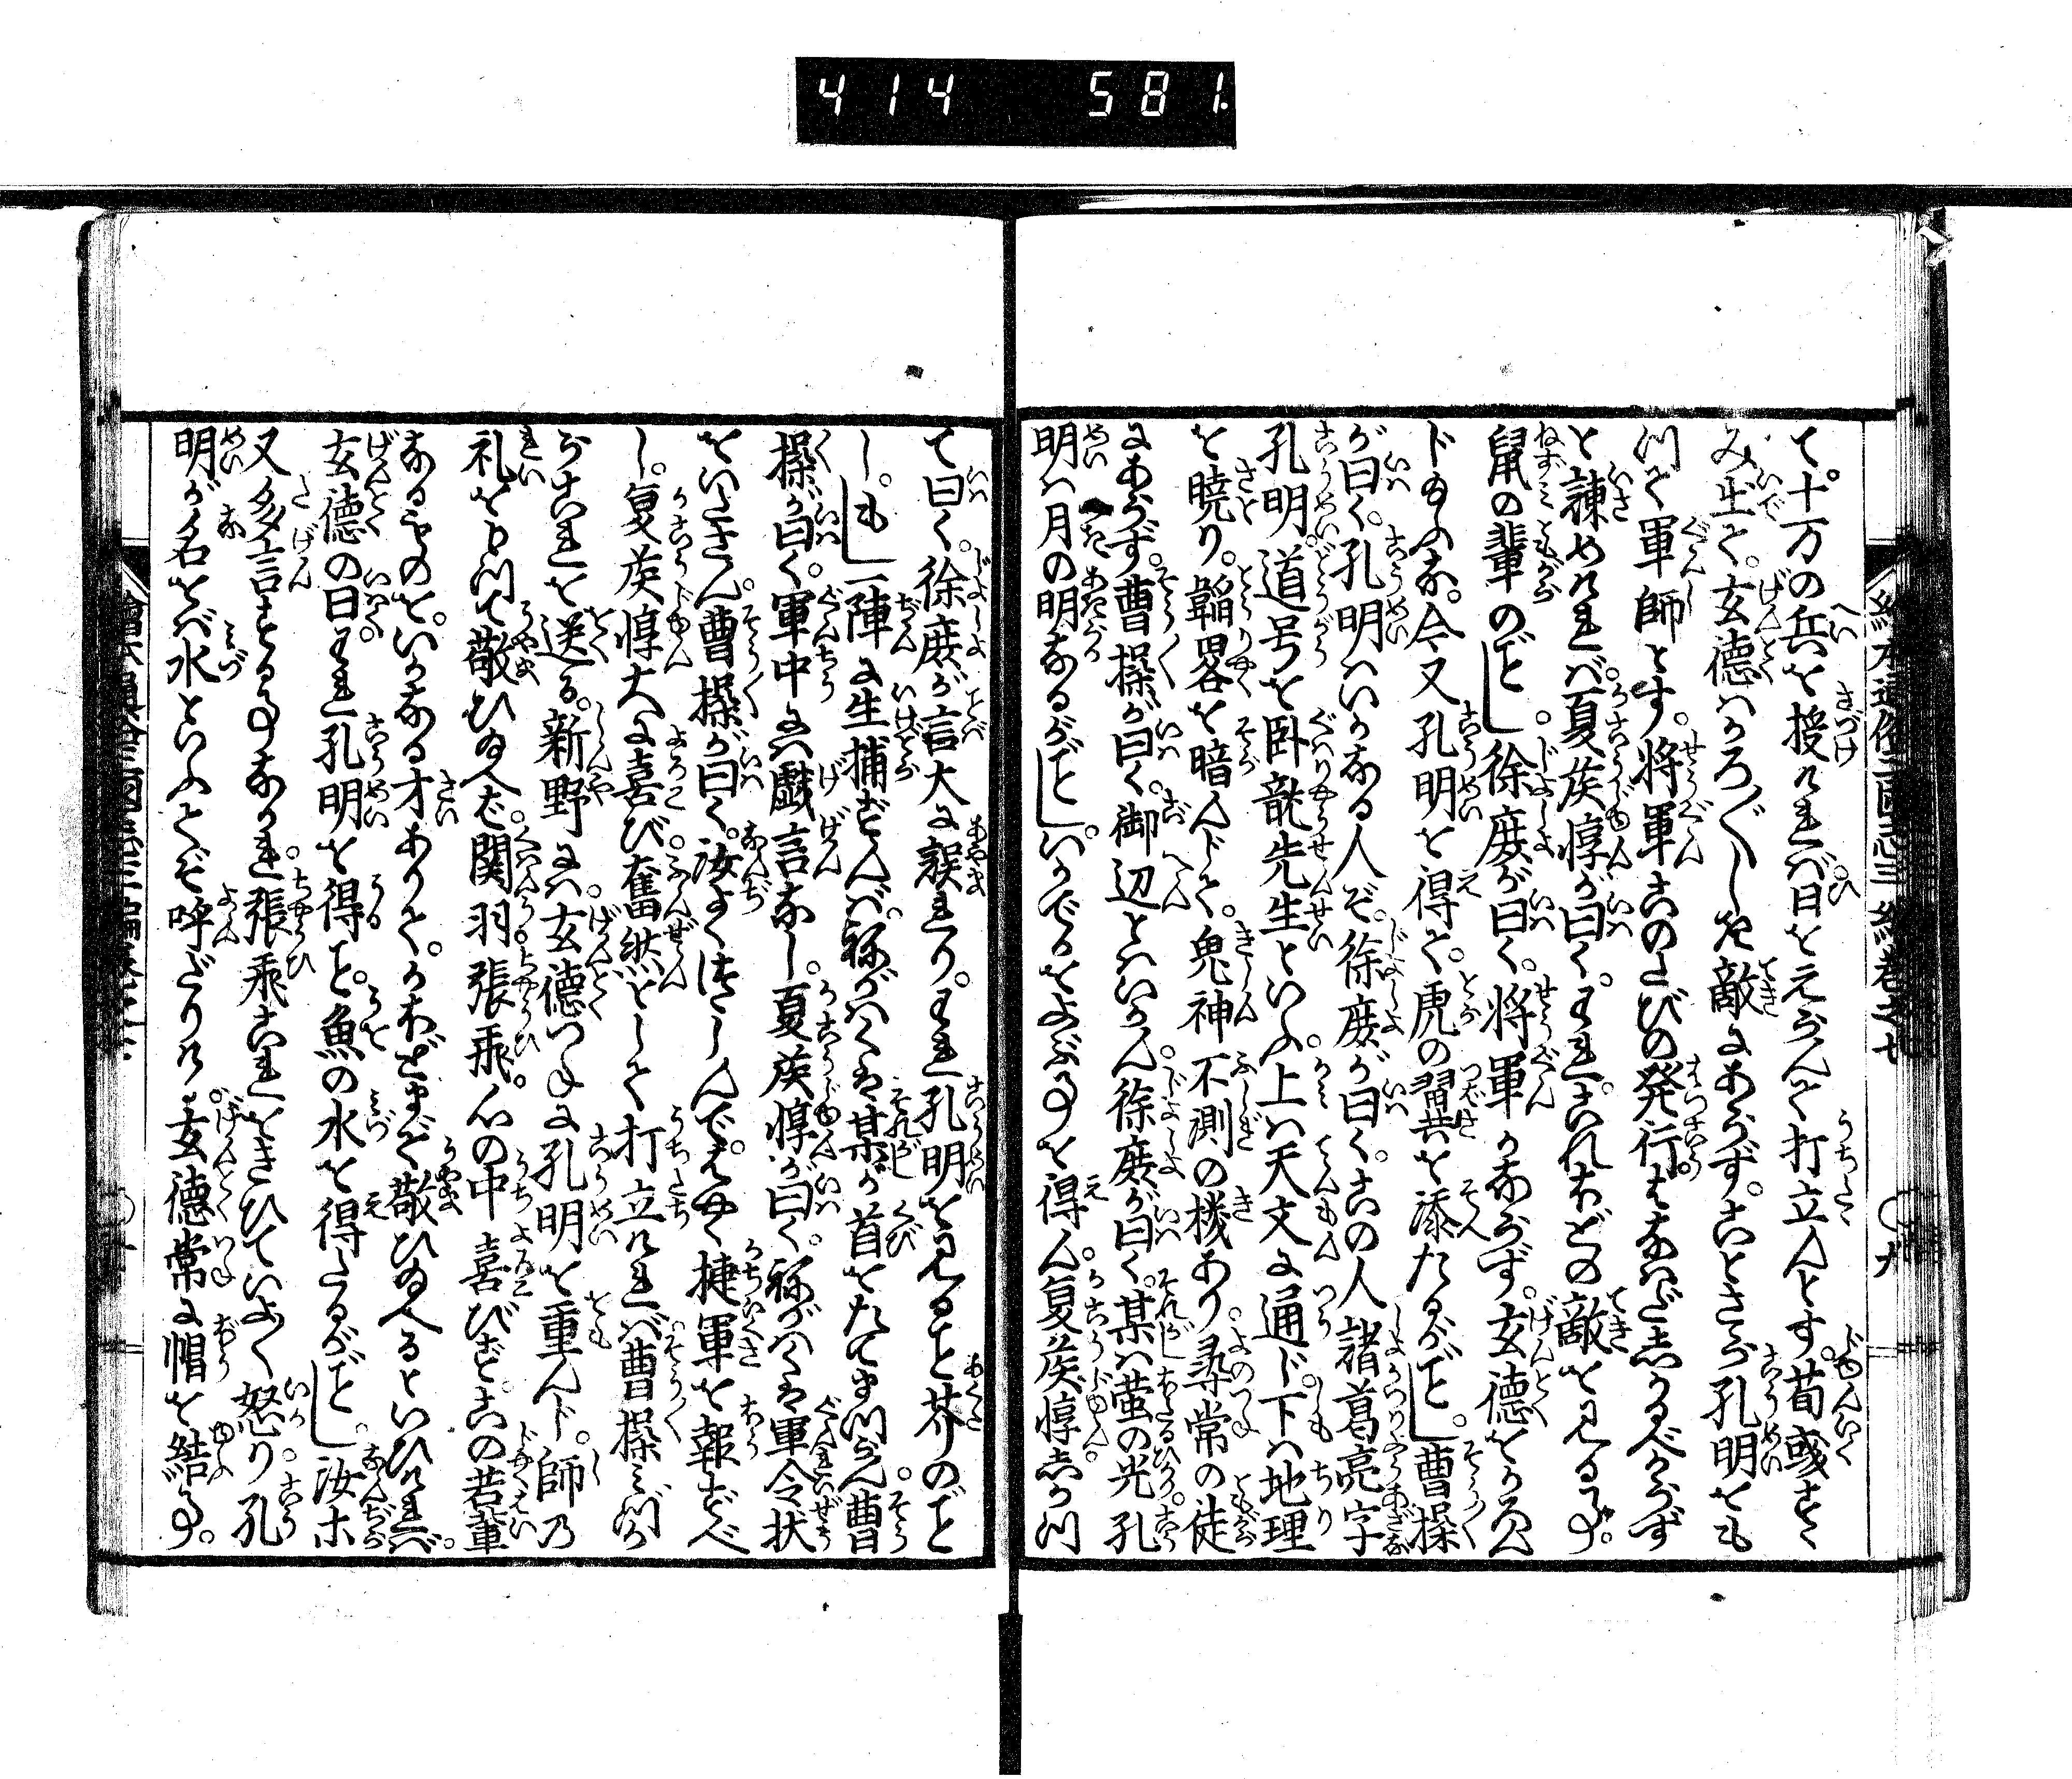 414 581
て。十万の兵を授けれバ日をえらんで打立んとす。荀彧すゝ
み出て。玄徳ハかろ〴〵しき敵にあらず。ことさら孔明をも
つて軍師とす。将軍このたびの発行はなはだしかるべからず
と諫めけれバ。夏侯惇が曰く。われこれほどの敵を見る事。
鼠の輩のごとし。徐庶が曰く。将軍かならず。玄徳をかろん
じ給ふな。今又孔明を得て。虎の翼を添たるがごとし。曹操
が曰く。孔明ハいかなる人ぞ。徐庶が曰く。この人諸葛亮字
孔明。道号を臥龍先生といふ。上ハ天文に通じ。下ハ地理
を暁り。韜畧を暗んじて。鬼神不測の機あり。尋常の徒
にあらず。曹操が曰く。御辺とハいかん。徐庶が曰く。某ハ蛍の光孔
明ハ月の明なるがごとし。いかでるをよぶ事を得ん。夏侯惇しかつ
て曰く。徐庶が言大に誤れり。われ孔明を見ること芥のごと
し。もし一陣に生捕ずんバ。ねがハくは某が首をたてまつらん。曹
操が曰く。軍中にハ戯言なし。夏侯惇が曰く。ねがハくは軍令状
をいたさん。曹操が曰く。汝よくつゝしんで。はやく捷軍を報ずべ
し。夏侯惇大に喜び。奮然として打立けれバ。曹操みづか
らこれを送る。新野にハ。玄徳つねに孔明を重んじ。師乃
礼をもつて敬ひ給へば。関羽。張飛。心の中喜びず。この若輩
なるものを。いかなる才ありて。かほどまで敬ひ給へるといひけれバ。
玄徳の曰。われ孔明を得て。魚の水を得たるがごとし。汝ホ
又多言する事なかれ。張飛これをきひていよ〳〵怒り。孔
明が名をバ水といふとぞ呼だりける。玄徳常に帽を結事。